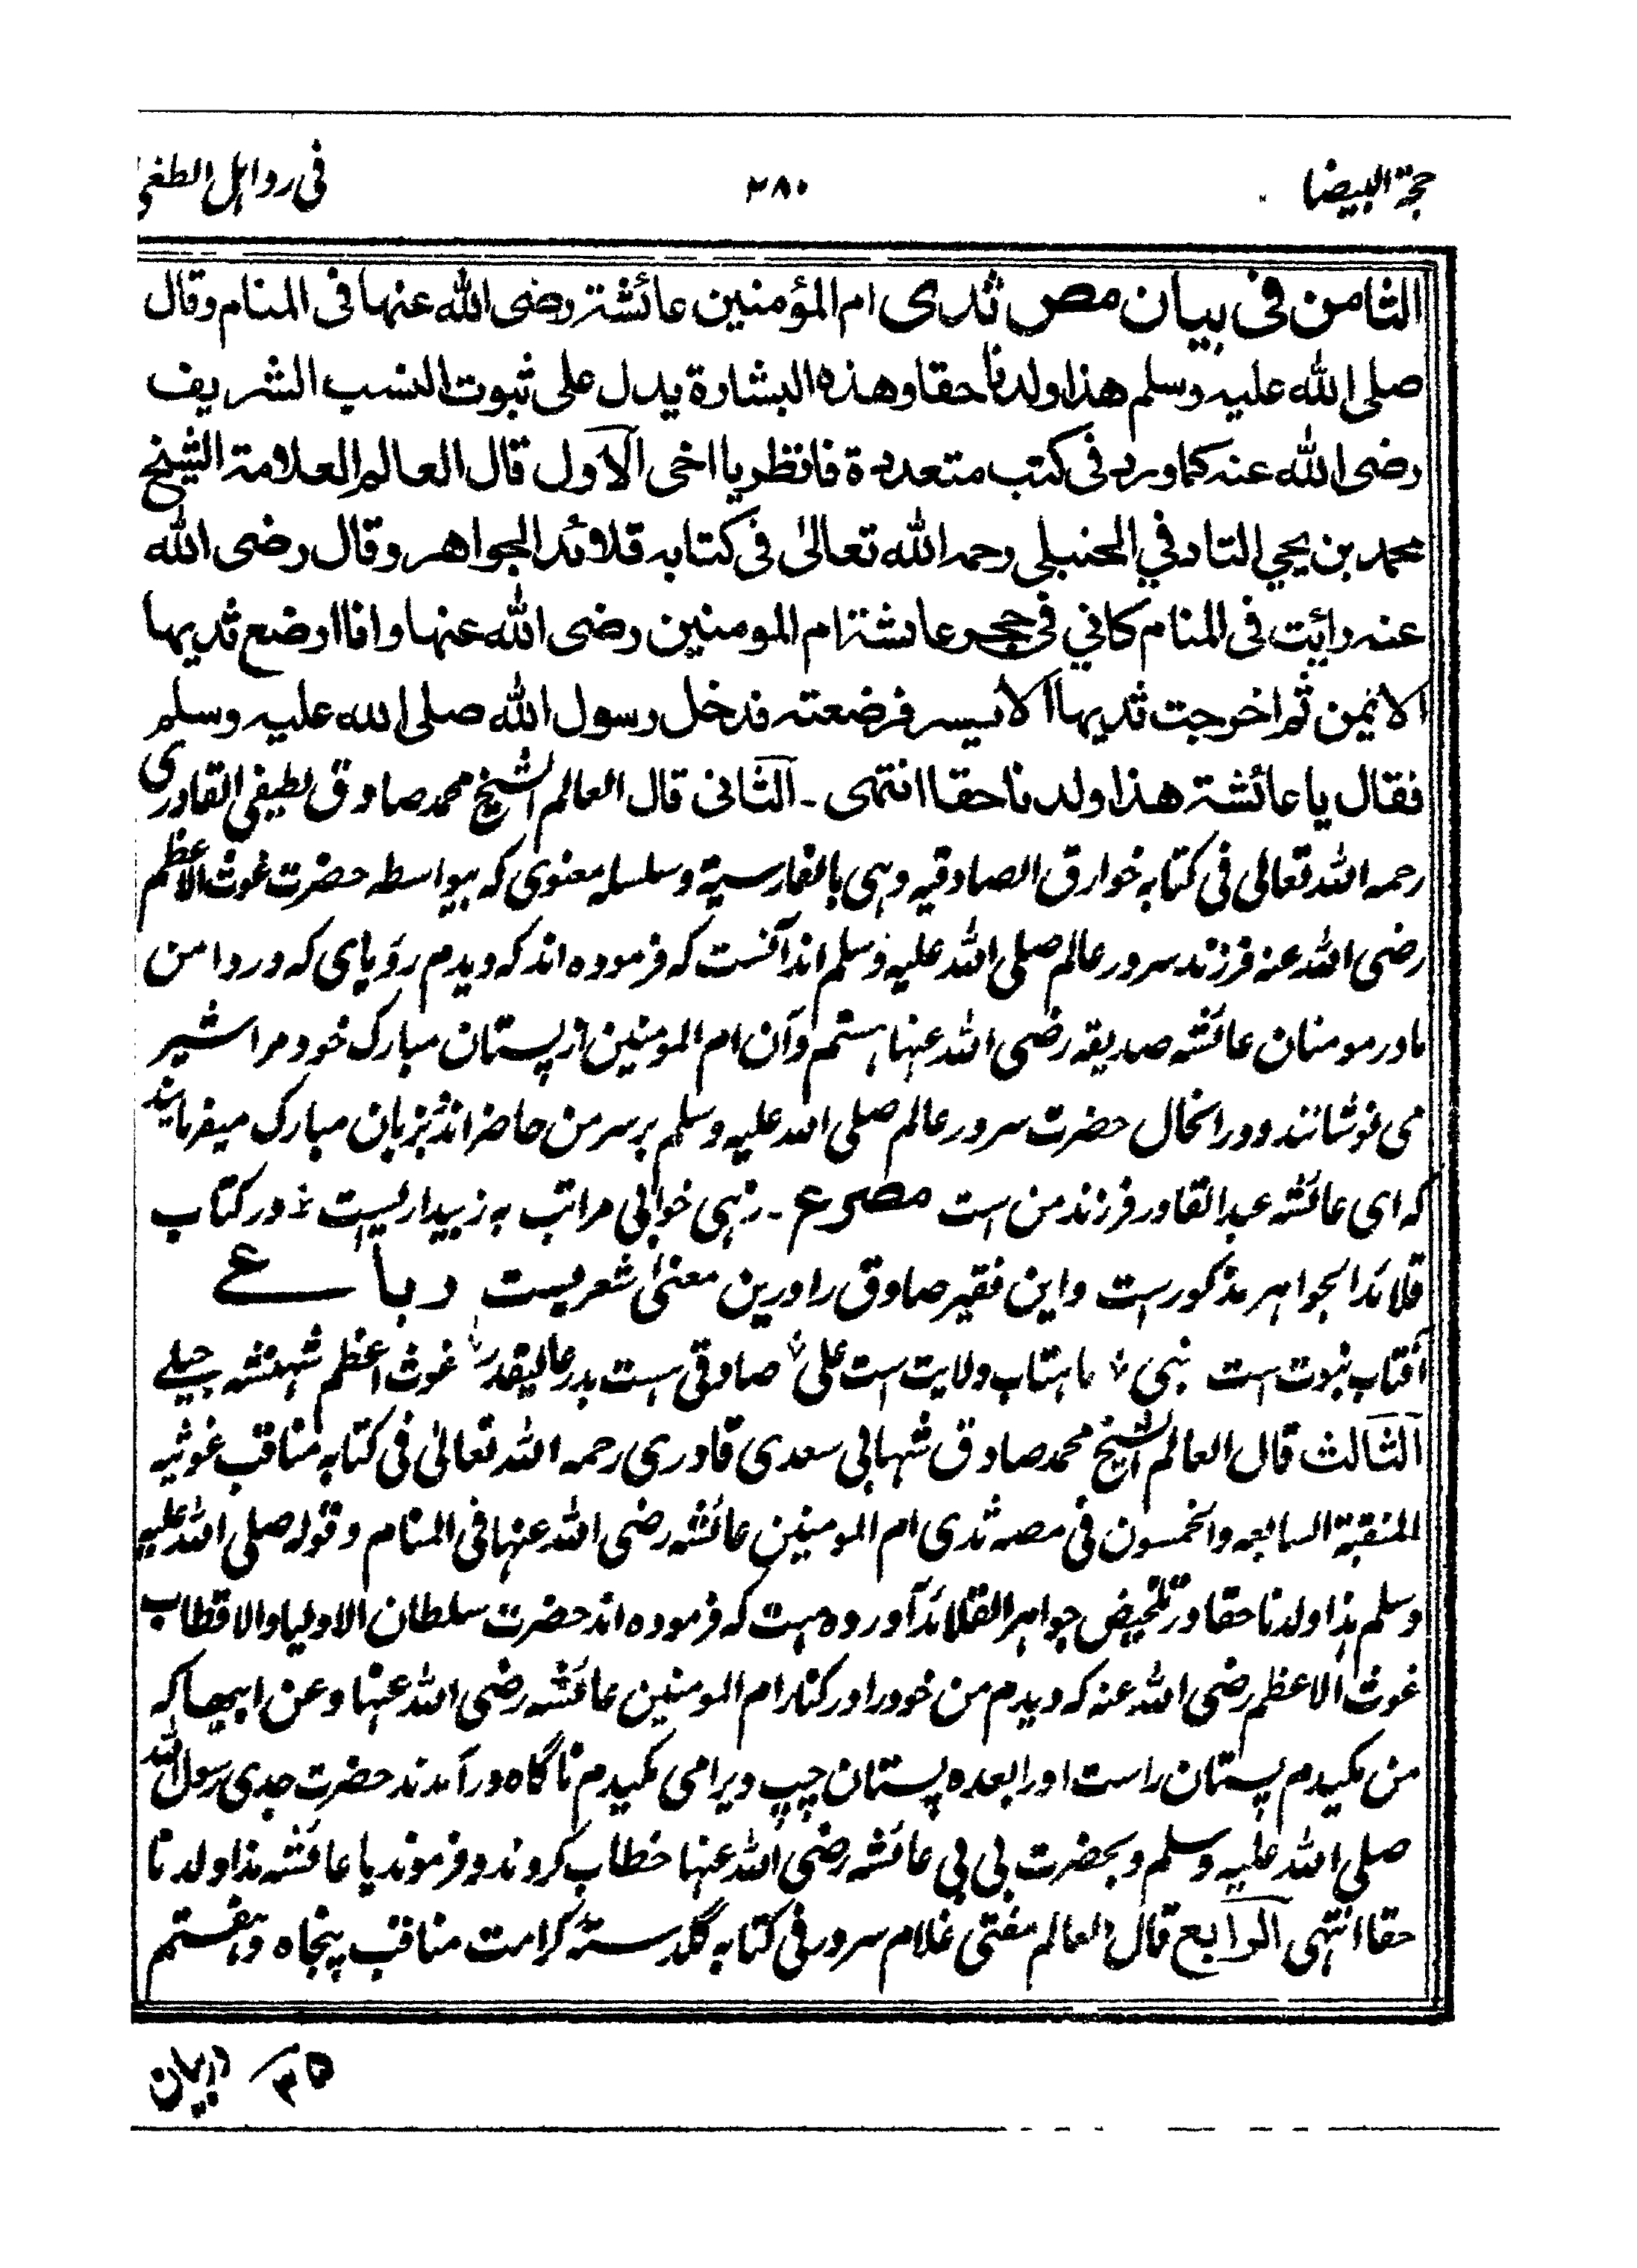 حجة البيضا ٢٨٠ فی رد اہل الطغی
الثامن فی بیان مص ثدی ام المؤمنین عائشة رضی الله عنہا فی المنام وقال
صلی الله علیہ وسلم هذا ولدنا حقا وهذه البشارة یدل علی ثبوت النسب الشریف
رضی الله عنہ کما ورد فی کتب متعددة فانظر یا اخی الاول قال العالم العلامة الشیخ
محمد بن یحیی التادفی الحنبلی رحمہ الله تعالیٰ فی کتابہ قلائد الجواهر وقال رضی الله
عنہ رائیت فی المنام کانی فی حجر عائشة ام المومنین رضی الله عنہا وانا ارضع ثدیہا
الایمن ثم اخرجت ثدیہا الایسر فرضعتہ فدخل رسول الله صلی الله علیہ وسلم
فقال یا عائشة هذا ولدنا حقا انتہی ۔ الثانی قال العالم الشیخ محمد صادق لطیفی القادری
رحمہ اللہ تعالی فی کتابہ خوارق الصادقیہ وہی بالفارسیة وسلسلہ معنوی کہ بیواسطہ حضرت غوث الاعظم
رضی اللہ عنہ فرزند سرور عالم صلی اللہ علیہ وسلم اند آنست کہ فرمودہ اند کہ دیدم رؤیای کہ در دامن
مادر مومنان عائشہ صدیقہ رضی اللہ عنہا ہستم وآن ام المومنین از پستان مبارک خود مرا شیر
می نوشانند ودر انحال حضرت سرور عالم صلی اللہ علیہ وسلم بر سر من حاضر اند بزبان مبارک میفرمایند
کہ ای عائشہ عبدالقادر فرزند من است مصرع ۔ زہی خوابی مراتب بہ ز بیداریست ؛ در کتاب
قلائد الجواہر مذکورست واین فقیر صادق را درین معنیٰ شعریست رباعے
آفتاب نبوت است نبی ؛ ماہتاب ولایت است علی ؛ صادقی ہست بدر عالیقدر ؛ غوث اعظم شہنشہ جیلے
الثالث قال العالم الشیخ محمد صادق شہابی سعدی قادری رحمہ اللہ تعالیٰ فی کتابہ مناقب غوثیہ
المنقبة السابعہ والخمسون فی مصہ ثدی ام المومنین عائشہ رضی اللہ عنہا فی المنام وقولہ صلی اللہ علیہ
وسلم ہذا ولدنا حقا در تلخیص جواہر القلائد آوردہ ہست کہ فرمودہ اند حضرت سلطان الاولیا والاقطاب
غوث الاعظم رضی اللہ عنہ کہ دیدم من خود را در کنار ام المومنین عائشہ رضی اللہ عنہا وعن ابیها کہ
من مکیدم پستان راست اورا بعدہ پستان چپ ویرا می مکیدم ناگاہ در آمدند حضرت جدی رسول اللہ
صلی اللہ علیہ وسلم وبحضرت بی بی عائشہ رضی اللہ عنہا خطاب کردند وفرمودند یا عائشہ ہذا ولدنا
حقا انتہی الرابع قال العالم مفتی غلام سرور فی کتابہ گلدستۂ کرامت مناقب پنجاہ وہفتم
۳۵ دربیان